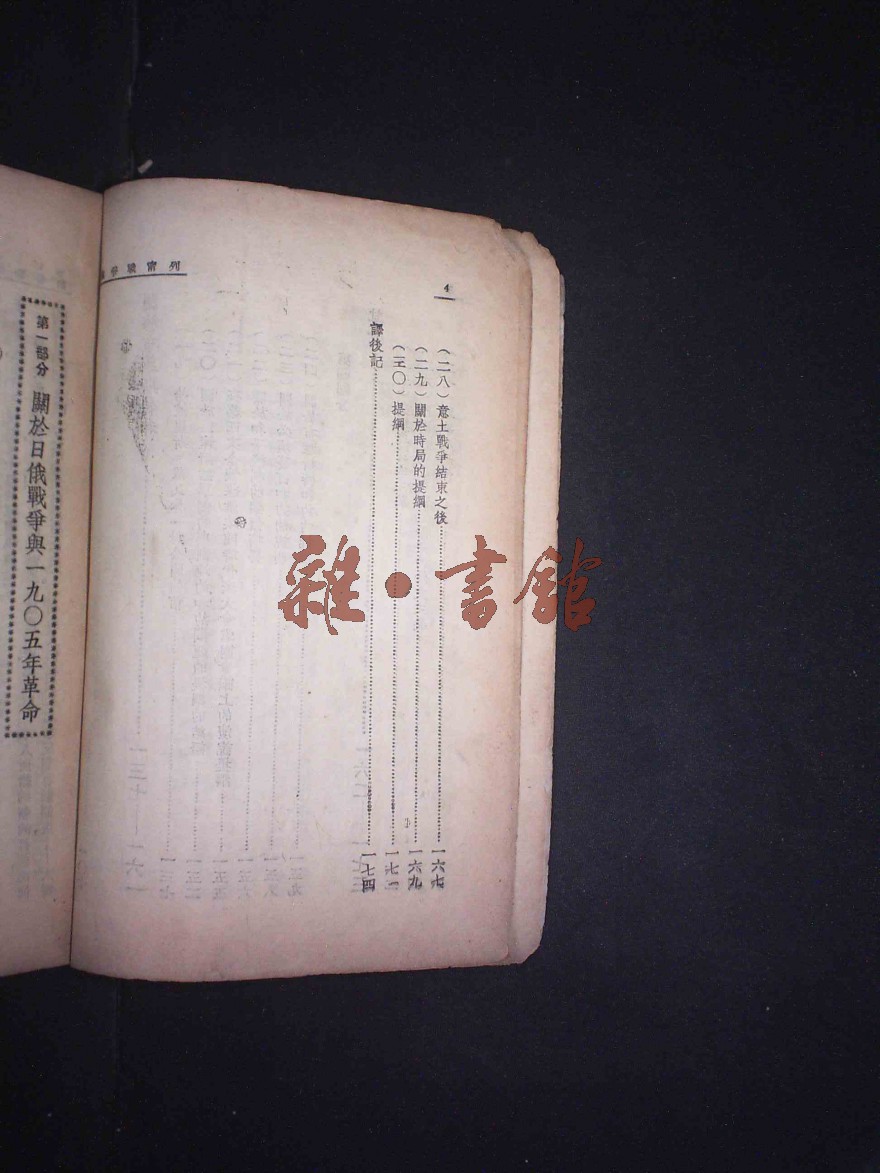 4
列甯戰爭
(二八)意土戰爭結束之後 一六七
(二九)關於時局的提綱 一六九
(三〇)提綱 一七二
譯後記 一七四
第一部分 關於日俄戰爭與一九〇五年革命
雜·書館